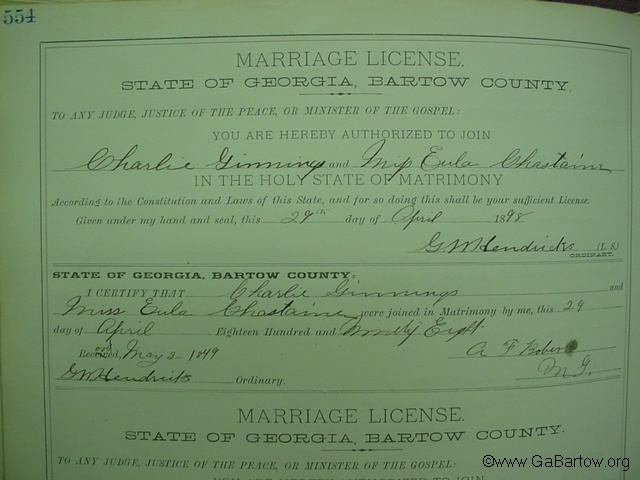 554
MARRIAGE LICENSE.
STATE OF GEORGIA, BARTOW COUNTY.
TO ANY JUDGE, JUSTICE OF THE PEACE, OR MINISTER OF THE GOSPEL:
YOU ARE HEREBY AUTHORIZED TO JOIN
Charlie Ginnings and Miss Eula Chastain
IN THE HOLY STATE OF MATRIMONY
According to the Constitution and Laws of this State, and for so doing this shall be your sufficient License.
Given under my hand and seal, this 29th day of April 1898
GW Hendricks (L. S.)
ORDINARY.
STATE OF GEORGIA, BARTOW COUNTY:
I CERTIFY THAT Charlie Ginnings and
Miss Eula Chastain were joined in Matrimony by me, this 29
day of April Eighteen Hundred and Ninety Eight
Received, May 3 1849 A F
GW Hendricks Ordinary. M. G.
MARRIAGE LICENSE.
STATE OF GEORGIA, BARTOW COUNTY.
TO ANY JUDGE, JUSTICE OF THE PEACE, OR MINISTER OF THE GOSPEL:
YOU ARE HEREBY AUTHORIZED TO JOIN
©www.GaBartow.org